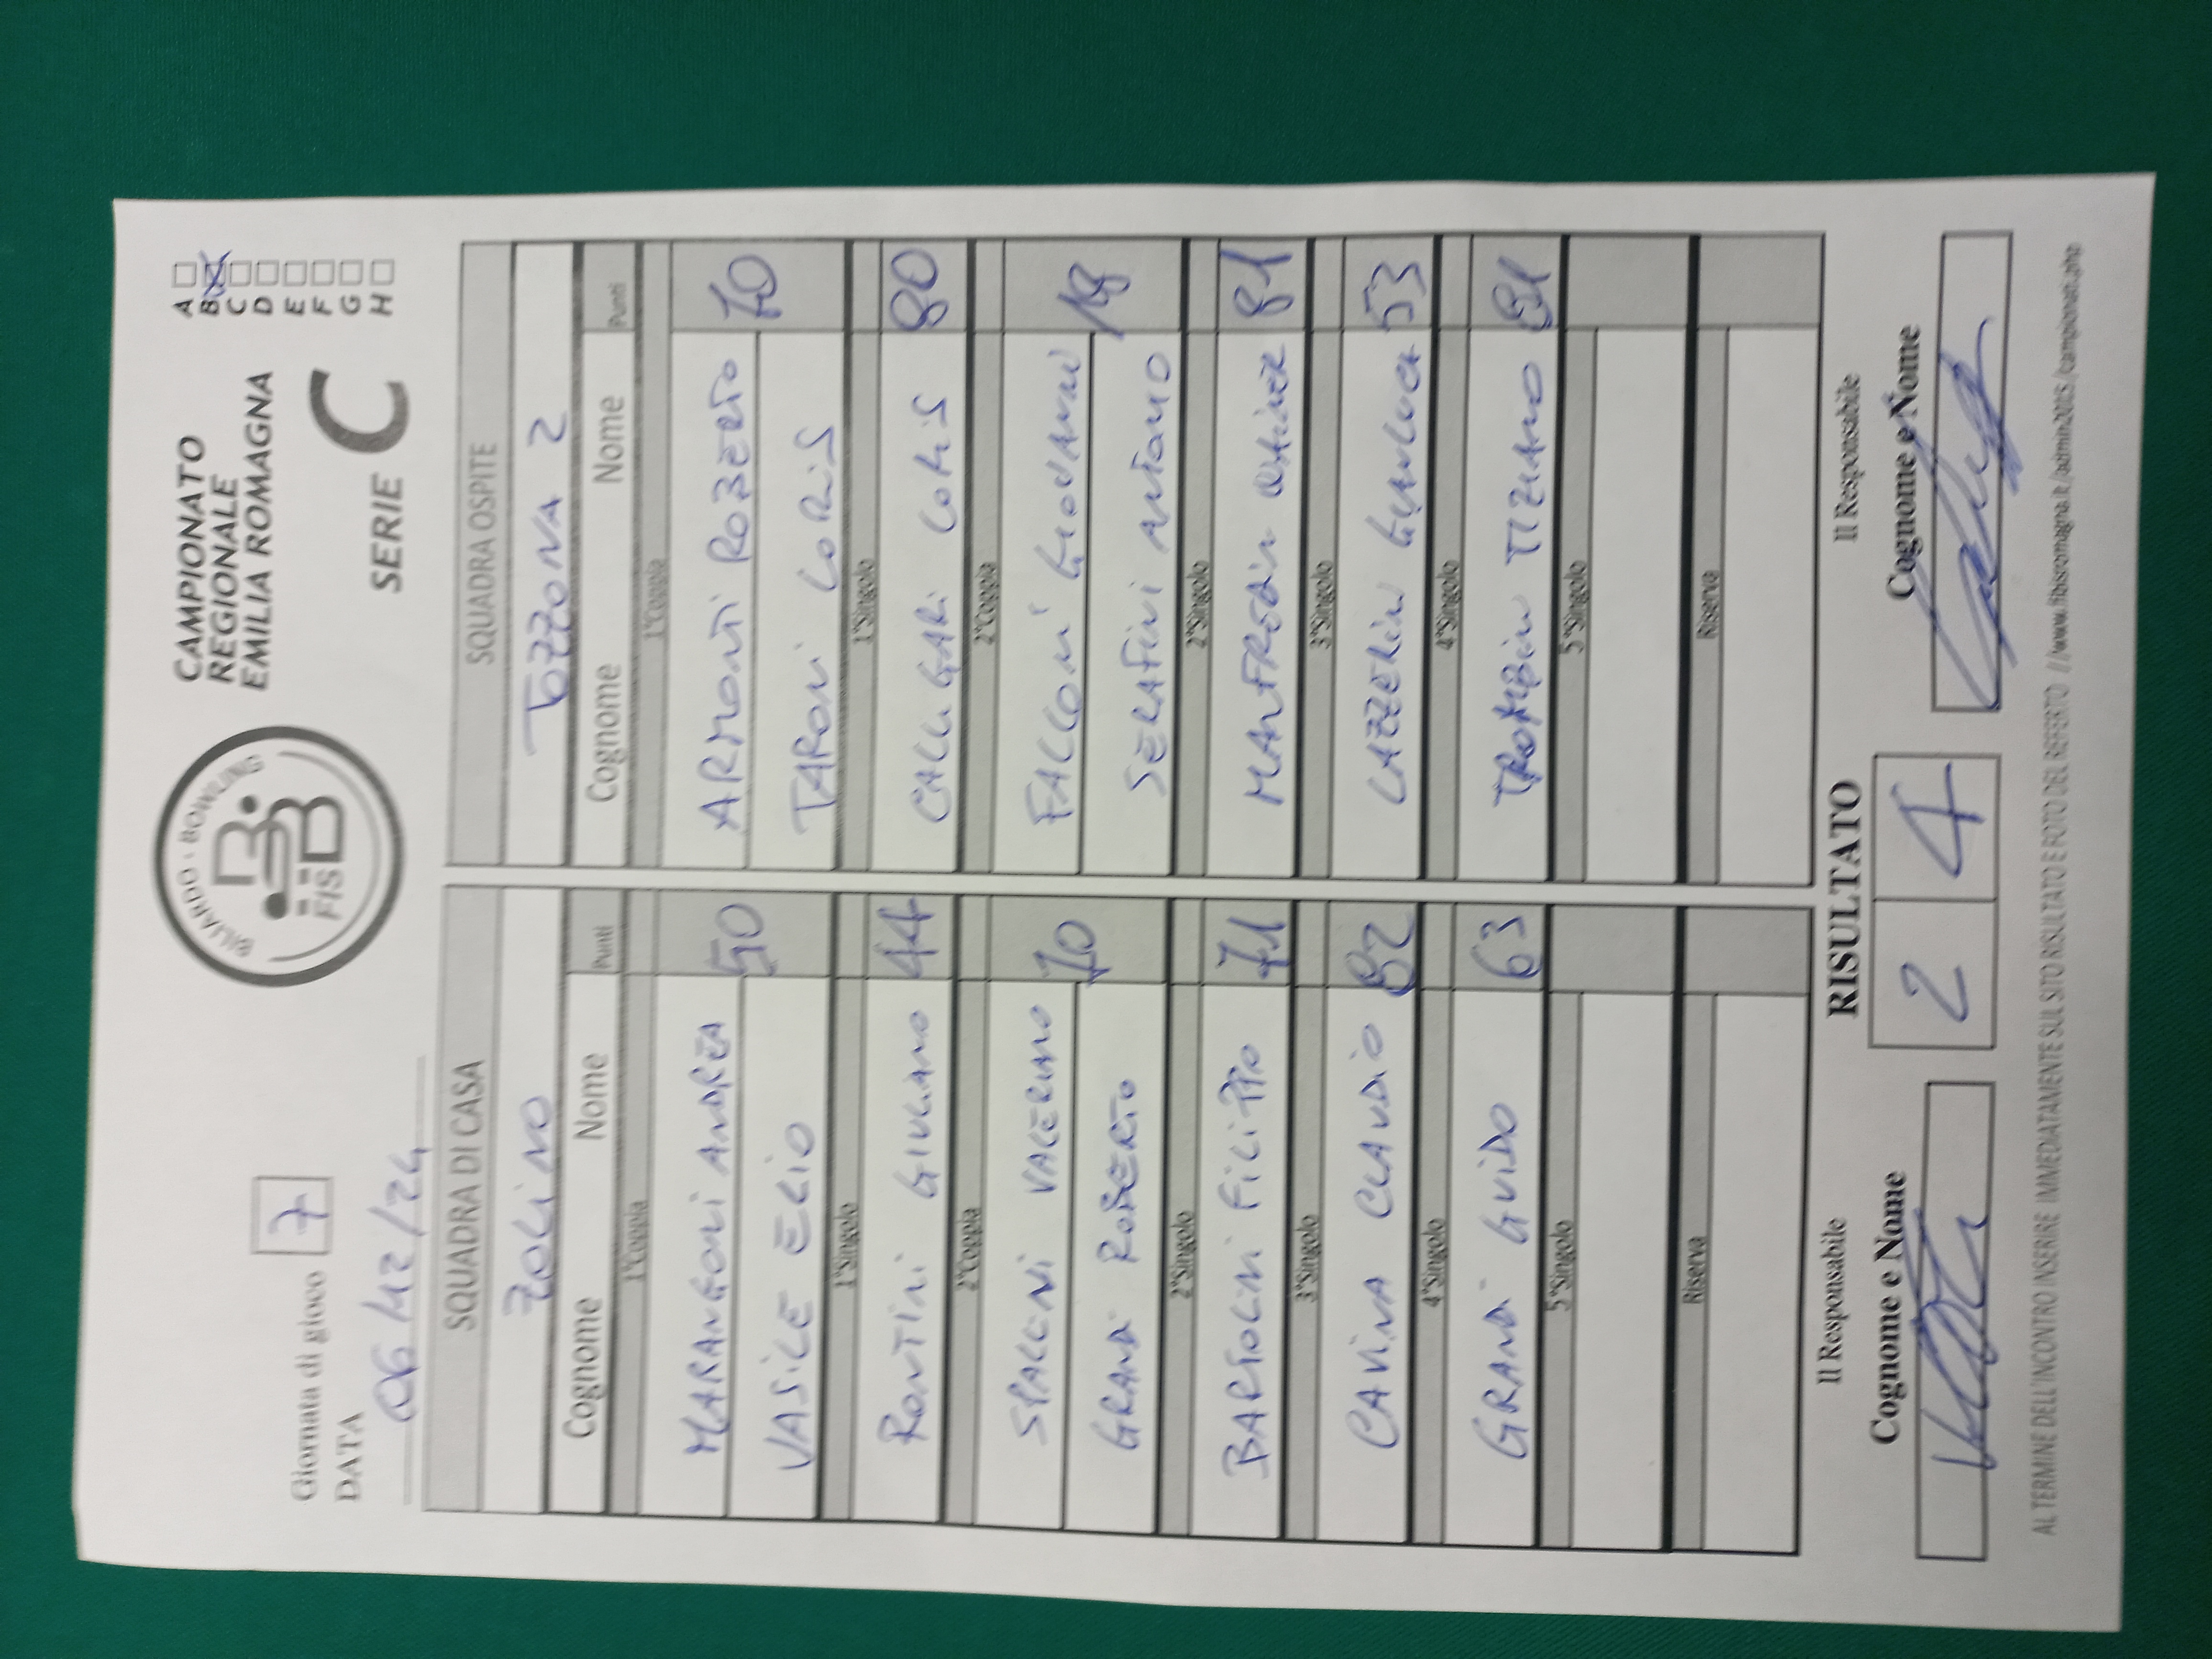 Giornata di gioco 7
DATA
06/12/24
BILIARDO · BOWLING
FISBB
CAMPIONATO
REGIONALE
EMILIA ROMAGNA
SERIE C
A
B
C
D
E
F
G
H
SQUADRA DI CASA
ZOLINO
Cognome Nome Punti
1°Coppia
MARANGONI ANDREA 50
VASILE ELIO
1°Singolo
RONTINI GIULIANO 44
2°Coppia
SPALLNI VALERIANO 70
GRANDI ROBERTO
2°Singolo
BARTOLINI FILIPPO 71
3°Singolo
CAVINA CLAUDIO 82
4°Singolo
GRANDI GUIDO 63
5°Singolo
Riserva
SQUADRA OSPITE
TOZZONA 2
Cognome Nome Punti
1°Coppia
ARMONTI ROBERTO 70
TARONI LORIS
1°Singolo
CALLIGARI LORIS 80
2°Coppia
FALCONI GIOVANNI
SERAFINI ANTONIO
2°Singolo
MANFREDINI 81
3°Singolo
LAZZERINI GIANLUCA 53
4°Singolo
TROMBINI TIZIANO 81
5°Singolo
Riserva
Il Responsabile
Cognome e Nome
RISULTATO
2 4
Il Responsabile
Cognome e Nome
AL TERMINE DELL'INCONTRO INSERIRE IMMEDIATAMENTE SUL SITO RISULTATO E FOTO DEL REFERTO //www.fibisromagna.it/admin2005/campionati.php